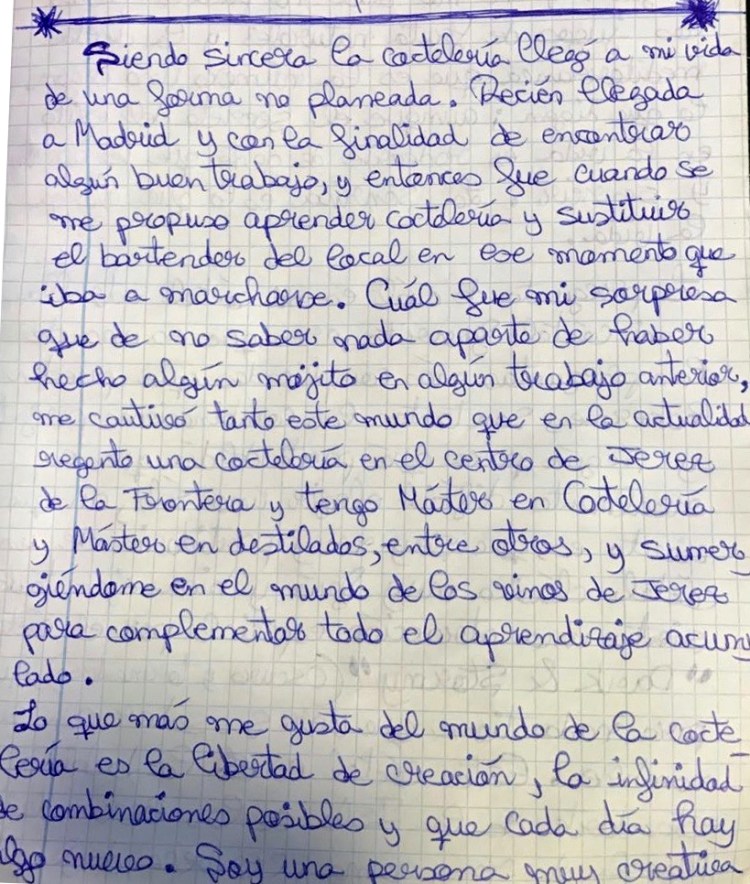 Siendo sincera la coctelería llegó a mi vida
de una forma no planeada. Recién llegada
a Madrid y con la finalidad de encontrar
algún buen trabajo, y entonces fue cuando se
me propuso aprender coctelería y sustituir
el bartender del local en ese momento que
iba a marcharse. Cuál fue mi sorpresa
que de no saber nada aparte de haber
hecho algún mojito en algún trabajo anterior,
me cautivó tanto este mundo que en la actualidad
regento una coctelería en el centro de Jerez
de la Frontera y tengo Máster en Coctelería
y Máster en destilados, entre otros, y sumer-
giéndome en el mundo de los vinos de Jerez
para complementar todo el aprendizaje acumu
lado.
Lo que más me gusta del mundo de la cocte-
lería es la libertad de creación, la infinidad
de combinaciones posibles y que cada día hay
algo nuevo. Soy una persona muy creativa